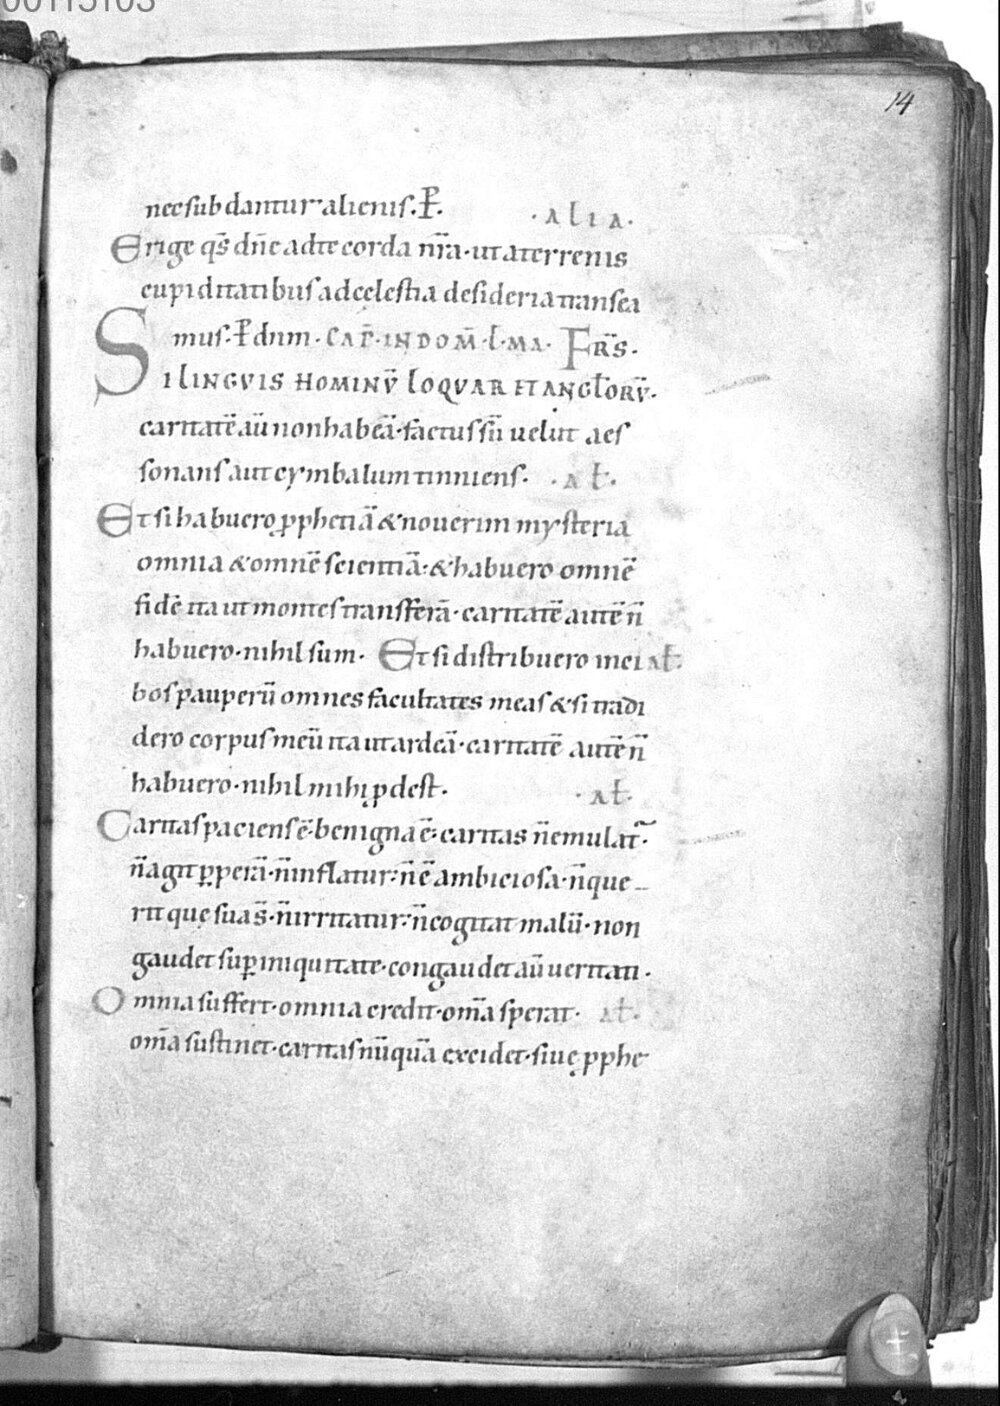 00115103
14
nec subdantur alienis. P̄.
·ALIA·
Erige qs̄ dn̄e ad te corda nr̄a· ut a terrenis
cupiditatibus ad celestia desideria transea
mus· P̄ dnm· CAP̄· IN DOM̄· L· MA· FRS̄·
SI LINGVIS HOMINV̄ LOQVAR ET ANGLORV̄·
caritatē aū non habeā· factus sū velut aes
sonans aut cymbalum tinniens· ·AL̄·
Et si habuero ꝓphetiā & noverim mysteria
omnia & omnē scientiā· & habuero omnē
fidē ita ut montes transferā· caritatē autē n̄
habuero· nihil sum· Et si distribuero inci AL̄·
bos pauperū omnes facultates meas & si tradi
dero corpus meū ita ut ardeā· caritatē autē n̄
habuero· nihil mihi ꝓdest· ·AL̄·
Caritas paciens ē· benigna ē· caritas n̄ emulat̄·
n̄ agit ꝑperā· n̄ inflatur· n̄ ē ambiciosa· n̄ que-
rit que sua s̄· n̄ irritatur· n̄ cogitat malū· non
gaudet suꝑ iniquitate· congaudet aū veritati·
Omnia suffert· omnia credit· om̄a sperat· AL̄·
om̄a sustinet· caritas nūquā excidet· sive ꝓphe